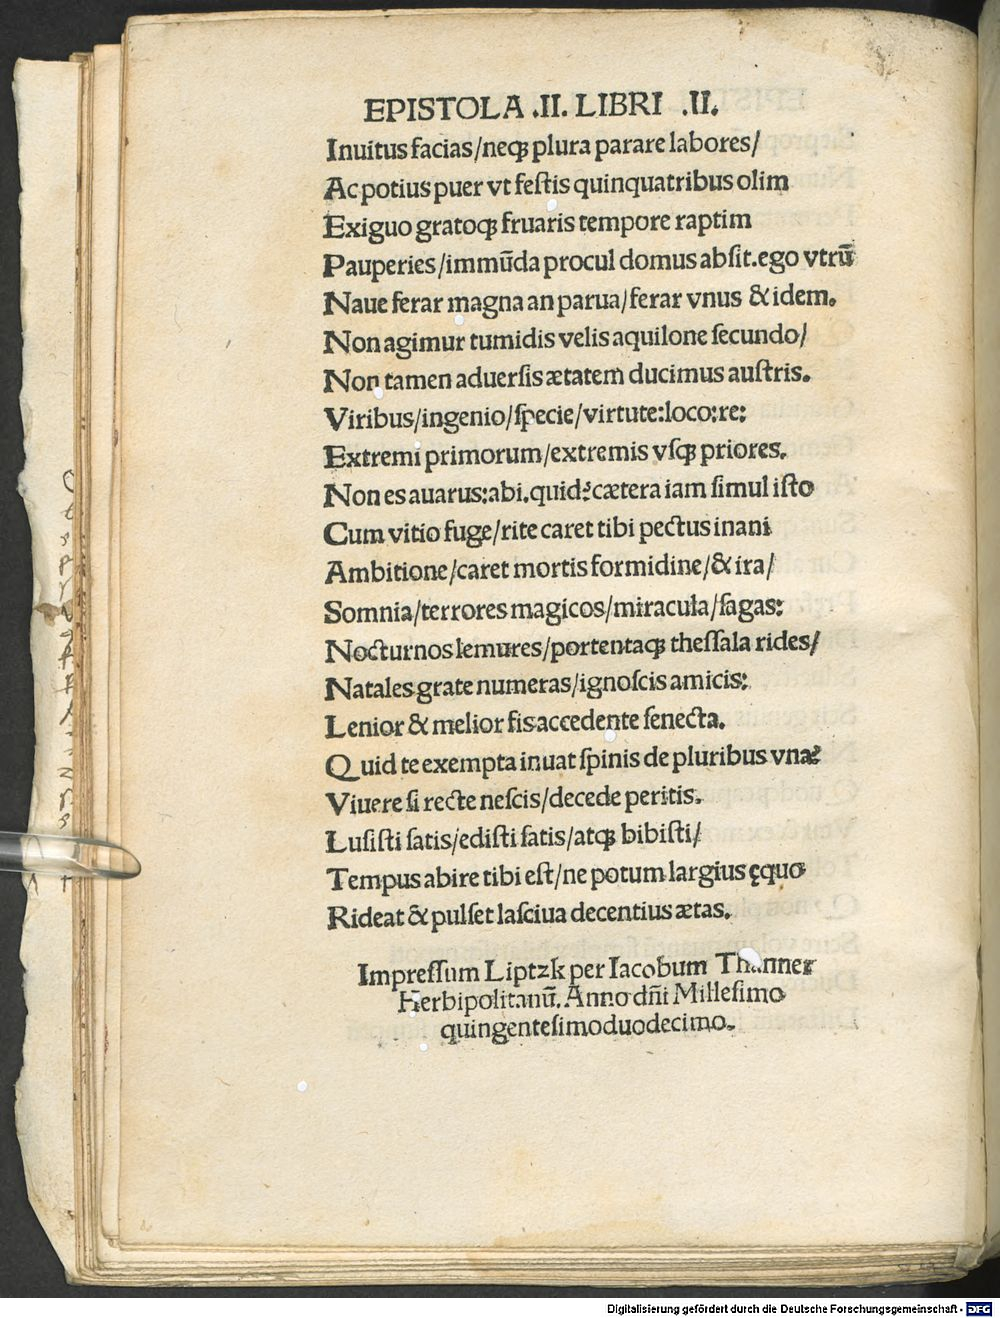 EPISTOLA .II. LIBRI .II.
Inuitus facias/neqꝫ plura parare labores/
Ac potius puer vt feſtis quinquatribus olim
Exiguo gratoqꝫ fruaris tempore raptim
Pauperies/immūda procul domus abſit.ego vtrū
Naue ferar magna an parua/ferar vnus & idem.
Non agimur tumidis velis aquilone ſecundo/
Non tamen aduerſis ætatem ducimus auſtris.
Viribus/ingenio/ſpecie/virtute:loco:re:
Extremi primorum/extremis vſqꝫ priores.
Non es auarus:abi.quid?cætera iam ſimul iſto
Cum vitio fuge/rite caret tibi pectus inani
Ambitione/caret mortis formidine/& ira/
Somnia/terrores magicos/miracula/ſagas:
Nocturnos lemures/portentaqꝫ theſſala rides/
Natales grate numeras/ignoſcis amicis:
Lenior & melior fis accedente ſenecta.
Quid te exempta iuuat ſpinis de pluribus vna?
Viuere ſi recte neſcis/decede peritis.
Luſiſti ſatis/ediſti ſatis/atqꝫ bibiſti/
Tempus abire tibi eſt/ne potum largius ęquo
Rideat & pulſet laſciua decentius ætas.
Impreſſum Liptzk per Iacobum Thanner
Herbipolitanū. Anno dñi Milleſimo
quingenteſimoduodecimo.
Digitalisierung gefördert durch die Deutsche Forschungsgemeinschaft - DFG